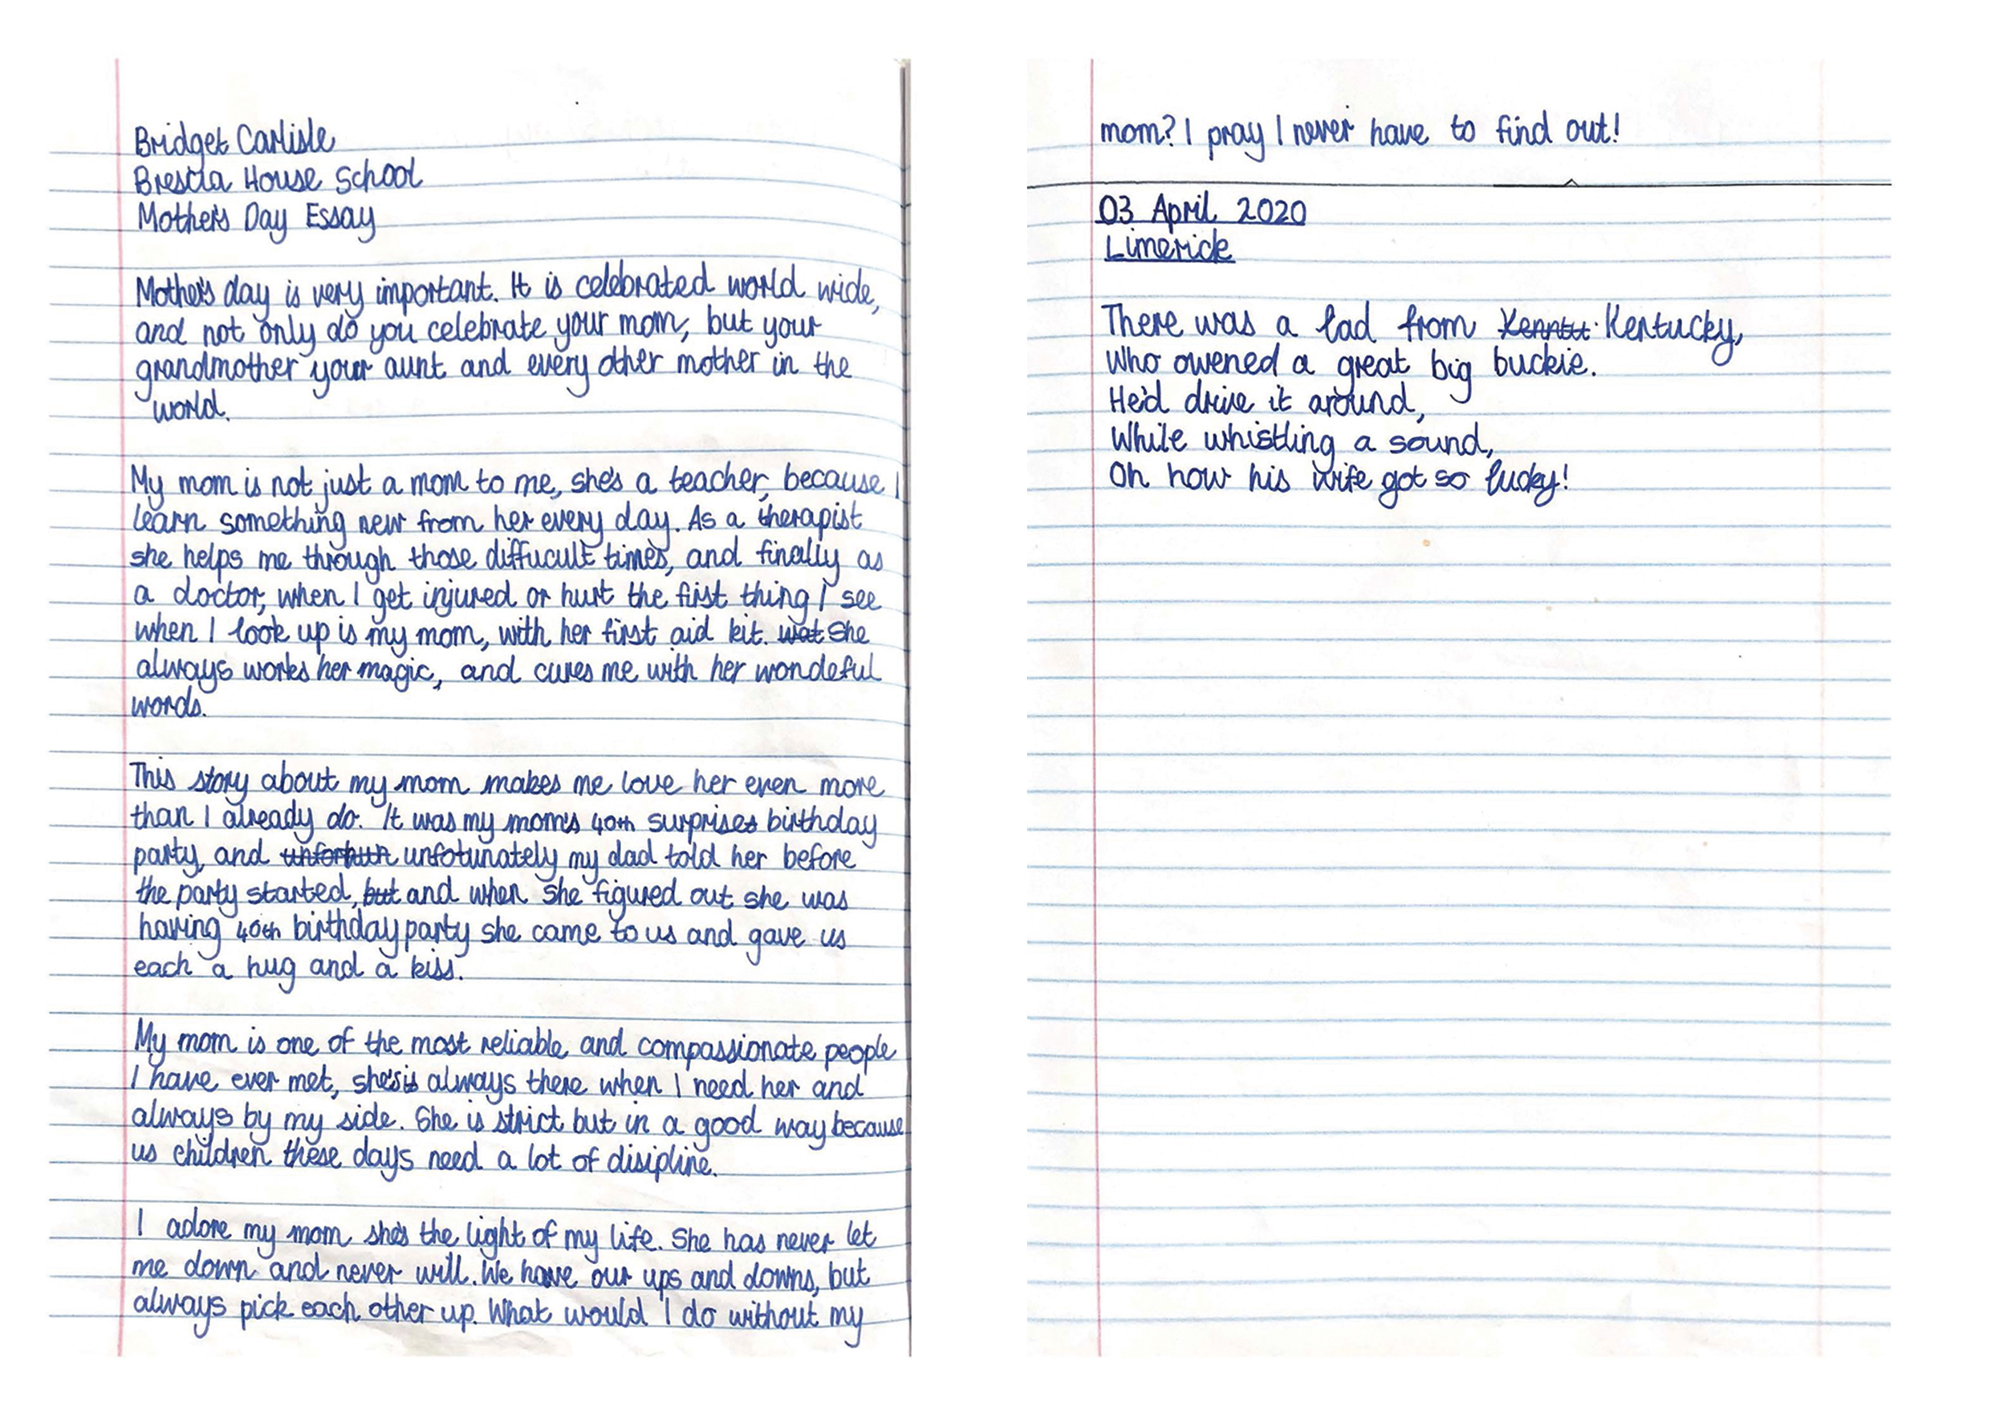 Bridget Carlisle
Brescia House School
Mother's Day Essay
Mother's day is very important. It is celebrated world wide,
and not only do you celebrate your mom, but your
grandmother your aunt and every other mother in the
world.
My mom is not just a mom to me, she's a teacher, because I
learn something new from her every day. As a therapist
she helps me through those diffucult times, and finally as
a doctor, when I get injured or hurt the first thing I see
when I look up is my mom, with her first aid kit. wat She
always works her magic, and cures me with her wondeful
words.
This story about my mom makes me love her even more
than I already do. It was my mom's 40th surprises birthday
party, and unfortun unfotunately my dad told her before
the party started, but and when she figured out she was
having 40th birthday party she came to us and gave us
each a hug and a kiss.
My mom is one of the most reliable and compassionate people
I have ever met, she's is always there when I need her and
always by my side. She is strict but in a good way because
us children these days need a lot of disipline.
I adore my mom she's the light of my life. She has never let
me down and never will. We have our ups and downs, but
always pick each other up. What would I do without my
mom? I pray I never have to find out!
03 April 2020
Limerick
There was a lad from Kenntu Kentucky,
Who owened a great big buckie.
He'd drive it around,
While whistling a sound,
Oh how his wife got so lucky!